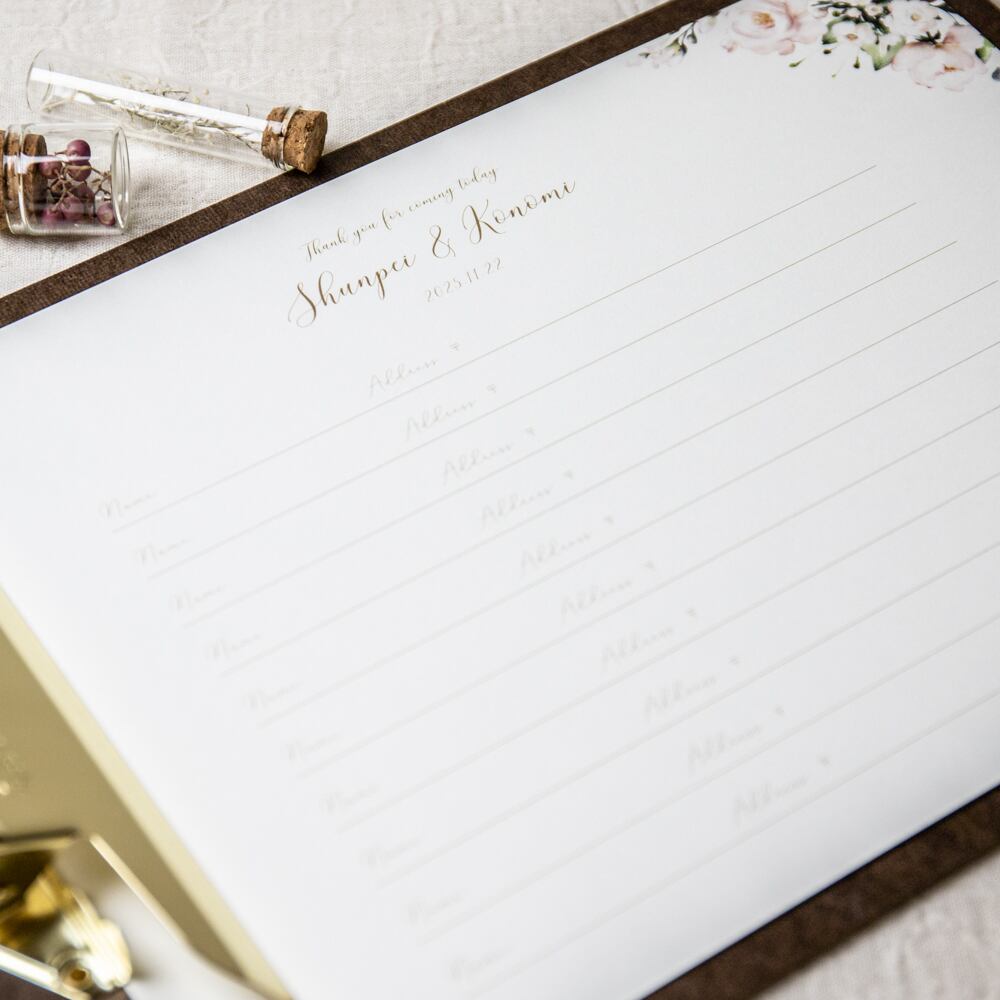 Thank you for coming today
Shunpei & Konomi
2025.11.22
Name Address 〒
Name Address 〒
Name Address 〒
Name Address 〒
Name Address 〒
Name Address 〒
Name Address 〒
Name Address 〒
Name Address 〒
Name Address 〒